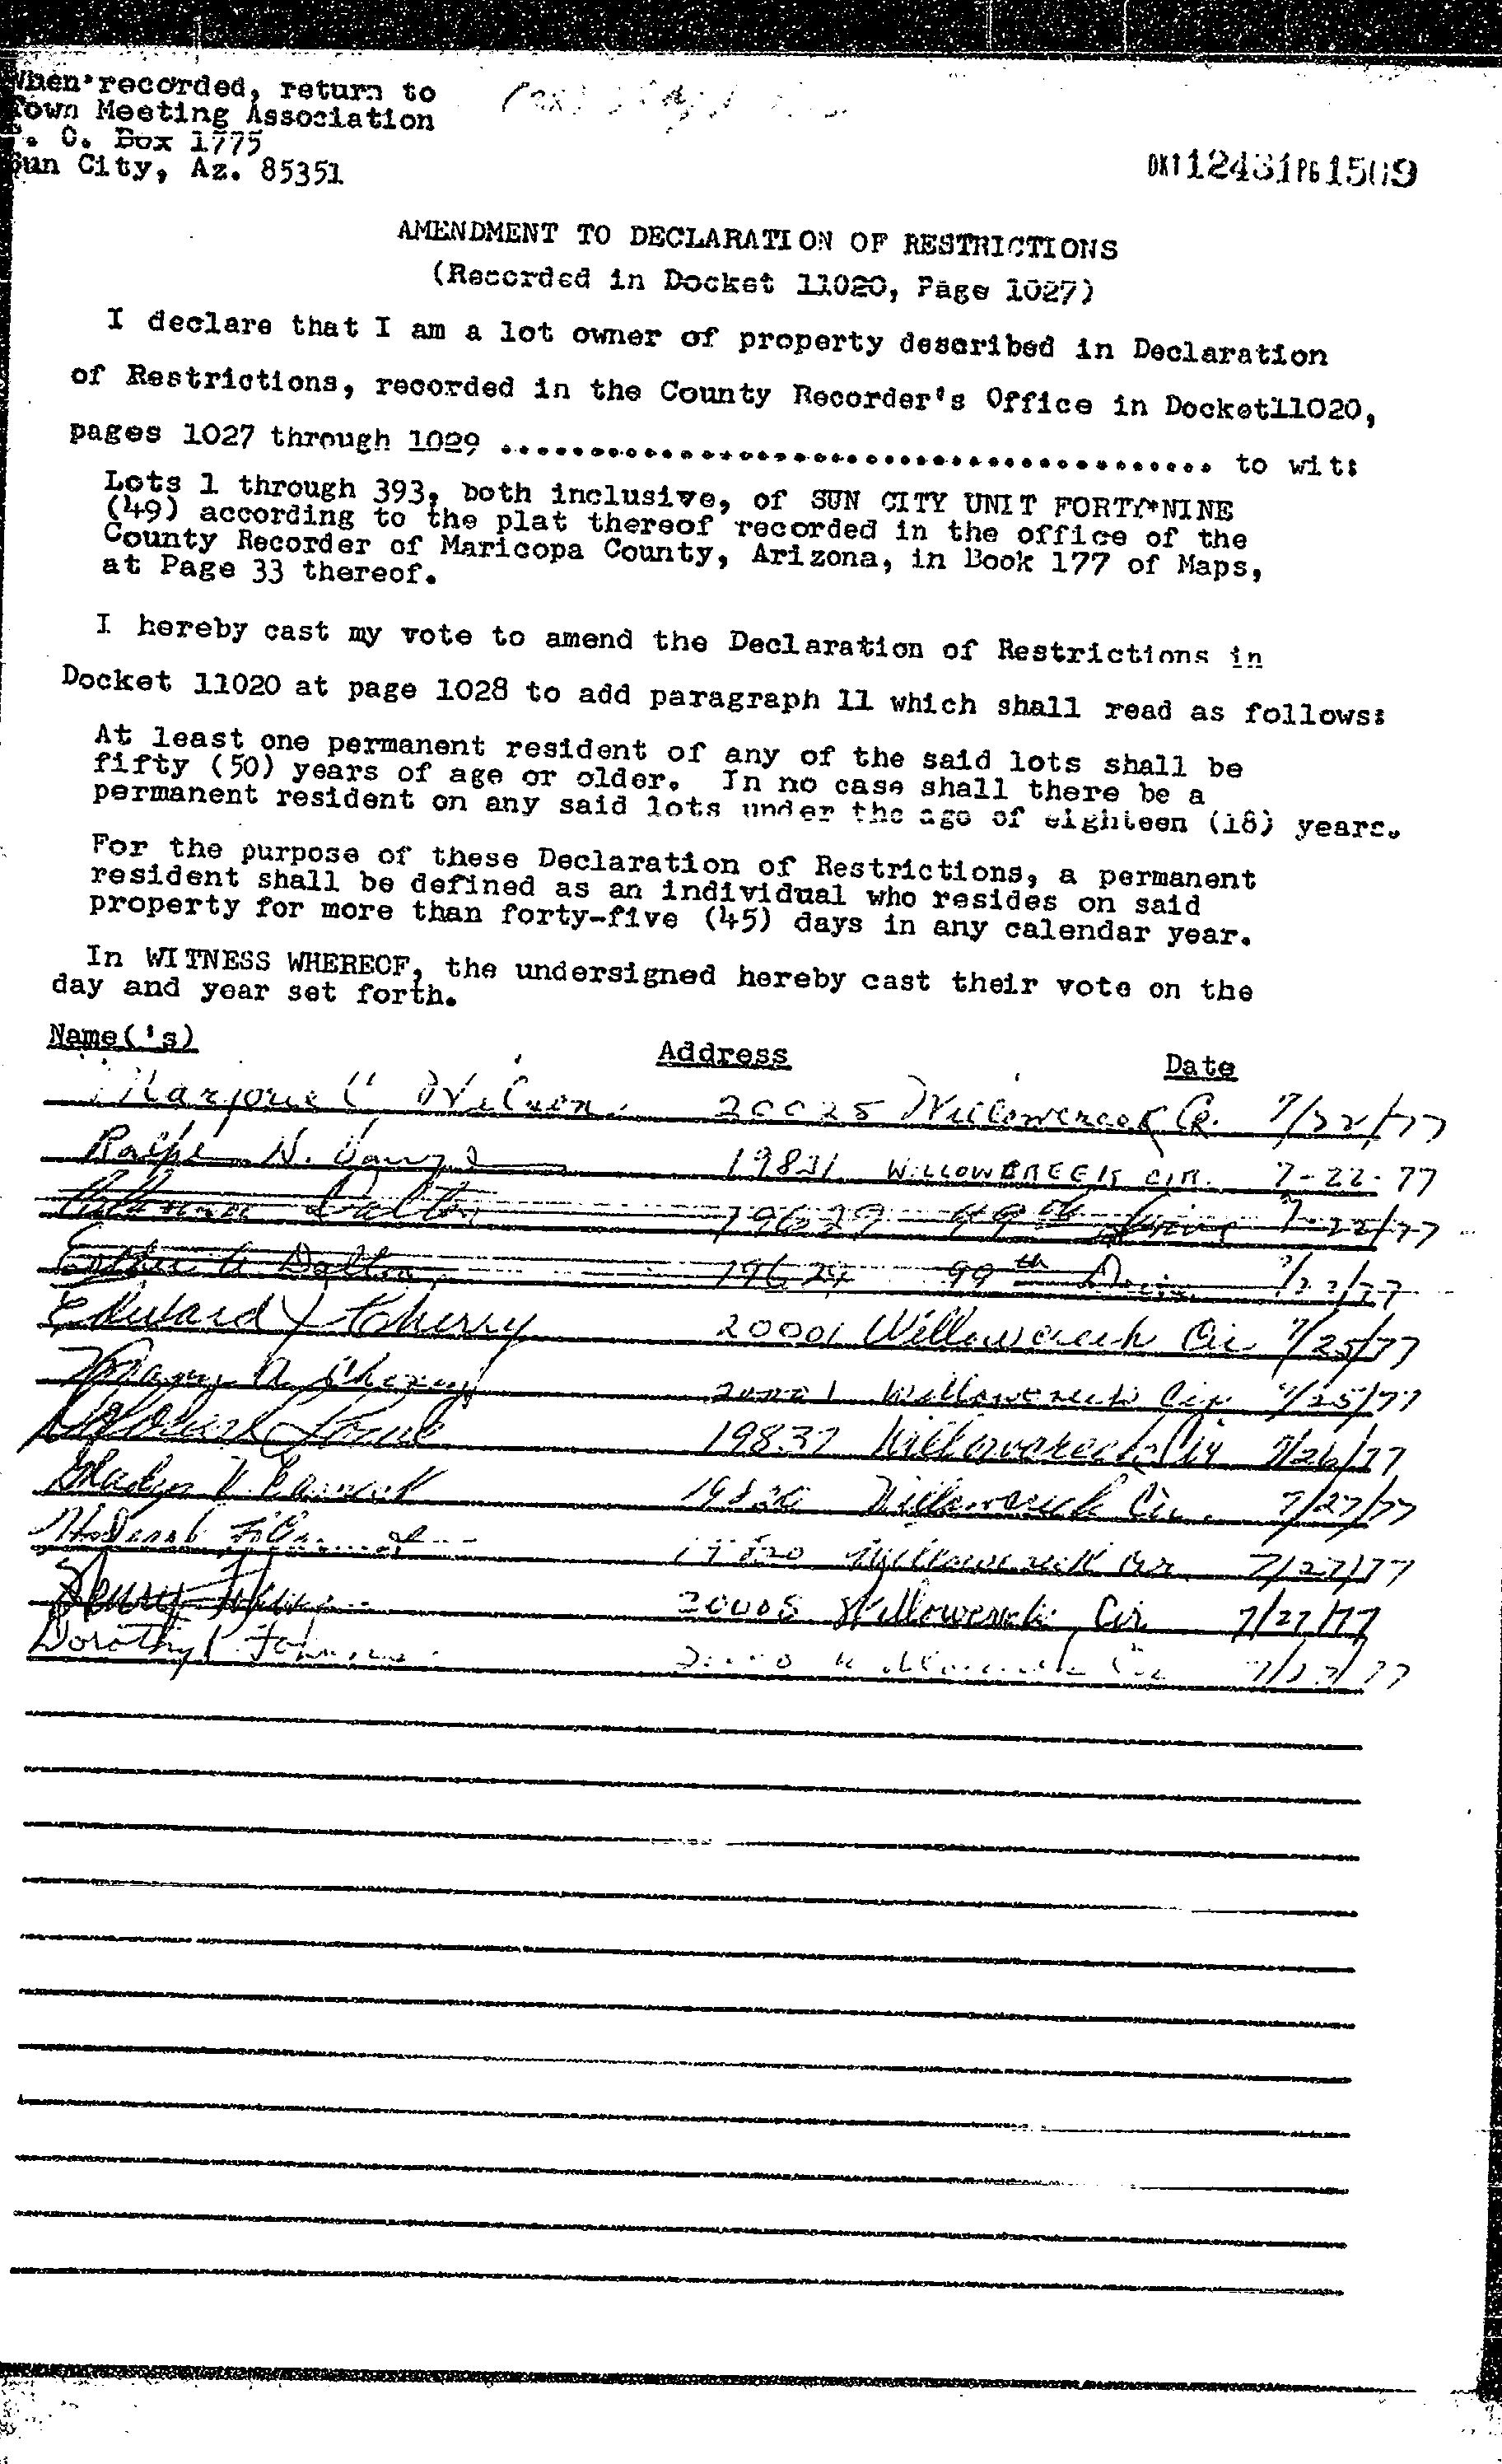 When recorded, return to
Town Meeting Association
P. O. Box 1775
Sun City, Az. 85351
DKT 12431 PG 1509
AMENDMENT TO DECLARATION OF RESTRICTIONS
(Recorded in Docket 11020, Page 1027)
I declare that I am a lot owner of property described in Declaration
of Restrictions, recorded in the County Recorder's Office in Docket11020,
pages 1027 through 1029 ........................................ to wit:
Lots 1 through 393, both inclusive, of SUN CITY UNIT FORTY*NINE
(49) according to the plat thereof recorded in the office of the
County Recorder of Maricopa County, Arizona, in Book 177 of Maps,
at Page 33 thereof.
I hereby cast my vote to amend the Declaration of Restrictions in
Docket 11020 at page 1028 to add paragraph 11 which shall read as follows:
At least one permanent resident of any of the said lots shall be
fifty (50) years of age or older. In no case shall there be a
permanent resident on any said lots under the age of eighteen (18) years.
For the purpose of these Declaration of Restrictions, a permanent
resident shall be defined as an individual who resides on said
property for more than forty-five (45) days in any calendar year.
In WITNESS WHEREOF, the undersigned hereby cast their vote on the
day and year set forth.
Name('s) Address Date
Marjorie C 20025 Willowcreek Cr. 7/22/77
Ralph N. 19831 WILLOWCREEK CIR. 7-22-77
Dalton 19629 99th Drive 7-22/77
Dalton 19629 99th Drive 7/22/77
Edward J Cherry 20001 Willowcreek Cir 7/25/77
Mary A Cherry 20001 Willowcreek Cir 7/25/77
19837 Willowcreek Cir 7/26/77
Gladys V. Willowcreek Cir. 7/27/77
Willowcreek Cir 7/27/77
Henry 20008 Willowcreek Cir 7/27/77
Dorothy P. 7/27/77